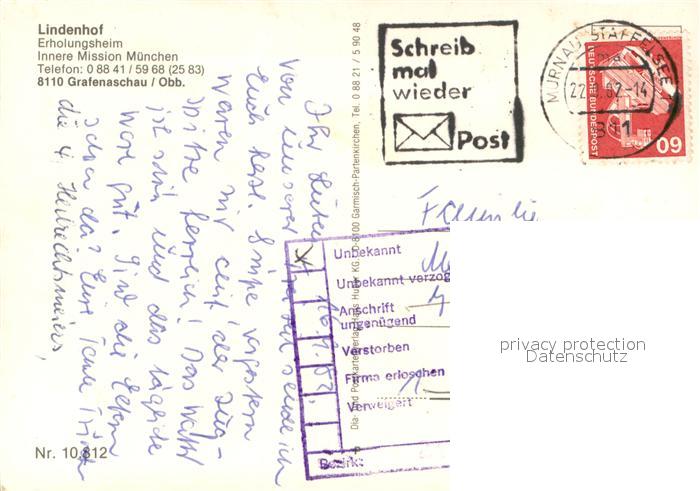 Lindenhof
Erholungsheim
Innere Mission München
Telefon: 0 88 41 / 59 68 (25 83)
8110 Grafenaschau / Obb.
Schreib
mal
wieder
Post
MURNAU, STAFFELSEE
22. 82-14
811
DEUTSCHE BUNDESPOST
60
Ihr Lieben
von unserer sende ich
Euch herzl. Grüße. Vorgestern
waren wir auf der Zug-
spitze herrlich! Das Wetter
ist schön und das tägliche
war gut. Sind die Eltern
schon da? Eure
die 4
Dia- und Postkartenverlag Hans Huber KG, D-8100 Garmisch-Partenkirchen, Tel. 0 88 21 / 5 90 48
Familie
Unbekannt
Unbekannt verzog
Anschrift
ungenügend
Verstorben
Firma erloschen
Verweigert
Bezirk:
Nr. 10.812
privacy protection
Datenschutz